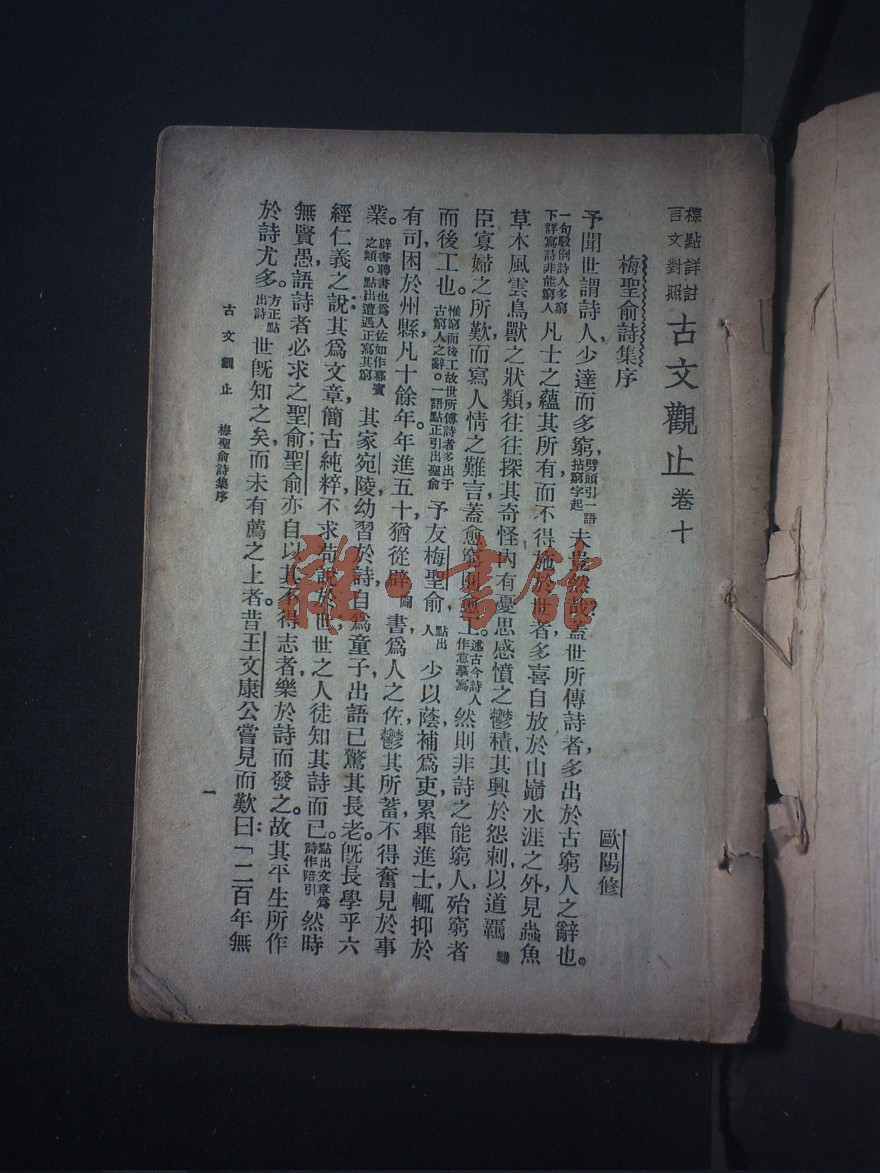 標點詳註
言文對照
古文觀止 卷十
梅聖俞詩集序
歐陽修
予聞世謂詩人少達而多窮，劈頭引一語拈窮字起夫豈然哉？蓋世所傳詩者，多出於古窮人之辭也。
一句駁倒詩人多窮下詳寫詩非能窮人凡士之蘊其所有而不得施於世者，多喜自放於山巔水涯之外，見蟲魚
草木風雲鳥獸之狀類，往往探其奇怪；內有憂思感憤之鬱積，其興於怨刺，以道羈
臣寡婦之所歎，而寫人情之難言，蓋愈窮則愈工。述古今詩人作意摹寫然則非詩之能窮人，殆窮者
而後工也。惟窮而後工故世所傳詩者多出于古窮人之辭。一語點正引出聖俞予友梅聖俞，點出人少以蔭補爲吏，累舉進士，輒抑於
有司，困於州縣，凡十餘年。年進五十，猶從辟書，爲人之佐，鬱其所蓄，不得奮見於事
業。辟書聘書也爲人佐如作幕賓之類。點出遭遇正寫其窮其家宛陵，幼習於詩，自爲童子，出語已驚其長老。既長，學乎六
經仁義之說：其爲文章，簡古純粹，不求苟說於世，世之人徒知其詩而已。點出文章爲詩作陪引然時
無賢愚，語詩者必求之聖俞；聖俞亦自以其不得志者，樂於詩而發之。故其平生所作，
於詩尤多。方正點出詩世既知之矣，而未有薦之上者。昔王文康公嘗見而歎曰：「二百年無
古文觀止 梅聖俞詩集序
一
雜·書館